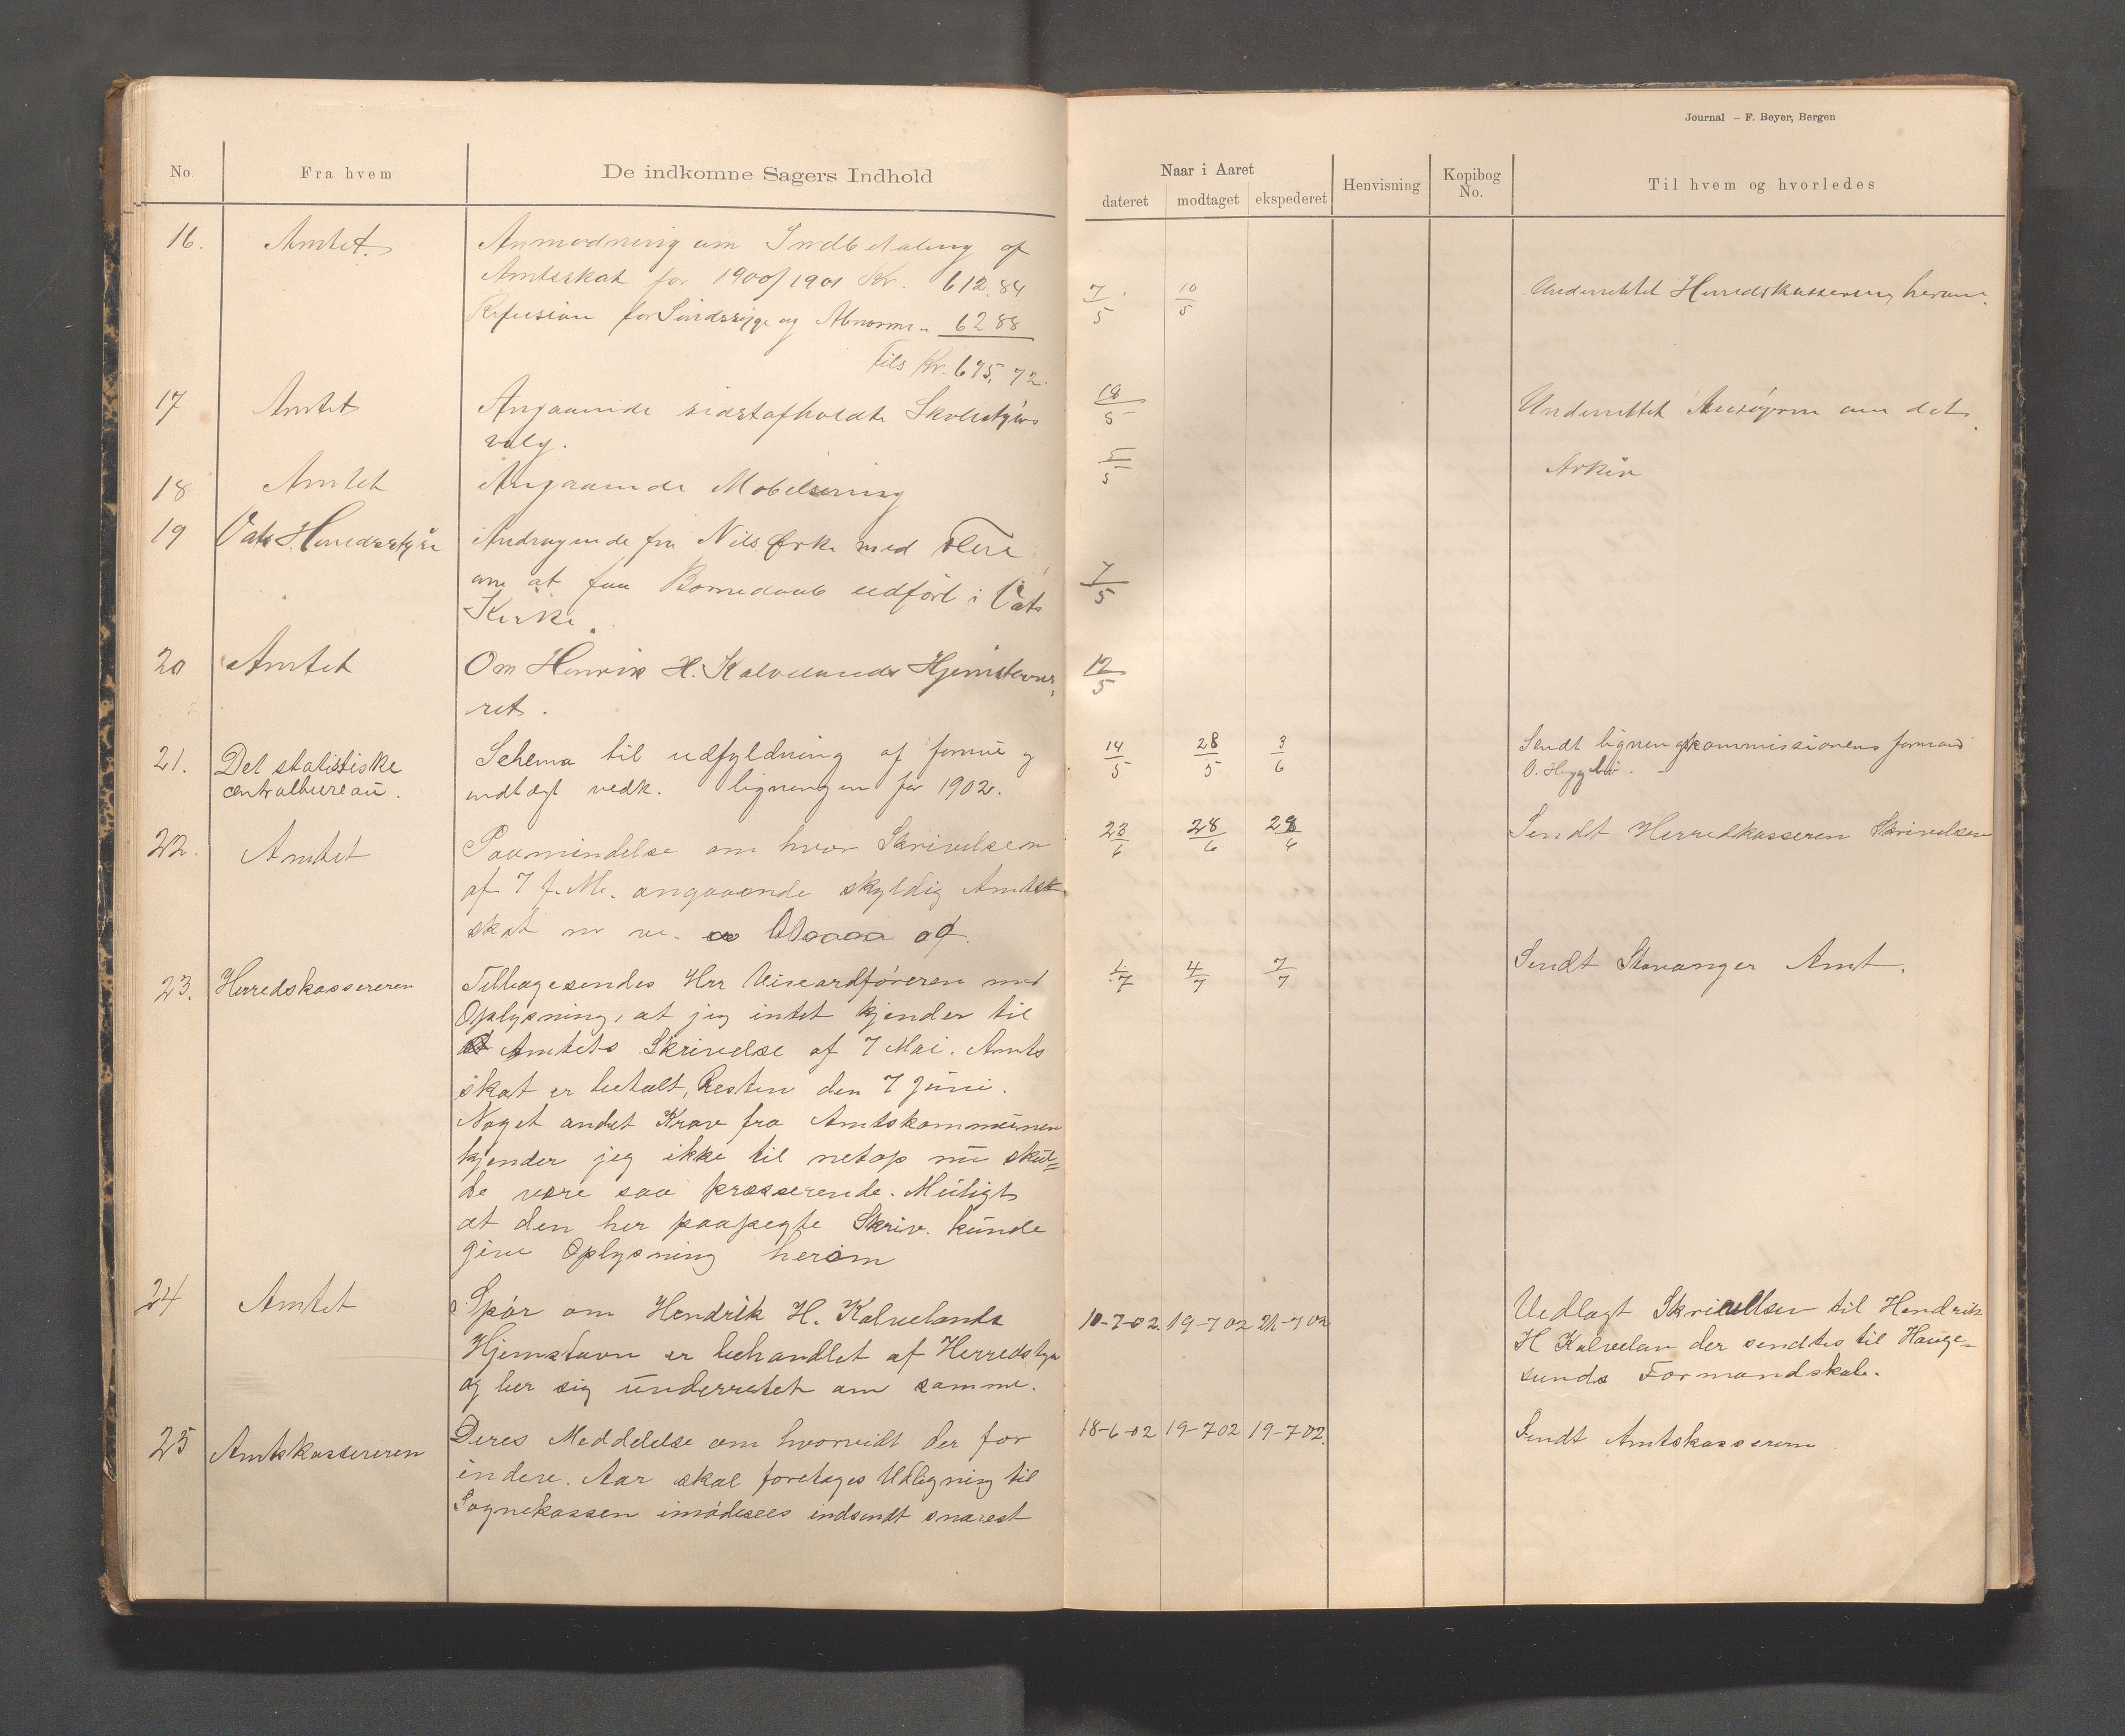 Journal – F. Beyer, Bergen
No. Fra hvem De indkomne Sagers Indhold
Naar i Aaret Henvisning Kopibog No. Til hvem og hvorledes
dateret modtaget ekspederet
16. Amtet. Anmodning om Indbetaling af
Amtsskat for 1900/1901 Kr. 612.84
Refusion for Sindssyge og Abnorme " 62 88
Tils Kr. 675,72.
7/5 10/5 Underrettet Herredskassereren herom.
17 Amtet Angaaende sidstafholdte Skolestyrs
valg.
18/5 Underrettet om det.
18 Amtet Angaaende Mobelisering
5/5 Arkiv
19 Vats Herredsstyre Andragende fra Nils Ørke med Flere
om at faa Barnedaab udført i Vats
Kirke.
7/5
20 Amtet Om Henrik H. Kalvelands Hjemstavns
ret.
12/5
21. Det statistiske Schema til udfyldning af formue og
centralbureau. indtægt vedk. ligningen for 1902.
14/5 28/5 3/6 Sendt ligningskommissionens formand
O.
22. Amtet Paamindelse om hvor Skrivelsen
af 7 f. M. angaaende skyldig Amts
skat af.
23/6 28/6 28/6 Sendt Herredkasseren Skrivelsen
23. Herredskassereren Tilbagesendes Hrr Viseordføreren med
Oplysning, at jeg intet kjender til
Amtets Skrivelse af 7 Mai. Amts
skat er betalt, Resten den 7 Juni.
Noget andet Krav fra Amtskommunen
kjender jeg ikke til netop nu skul=
de være saa præsserende. Muligt
at den her paapegte Skriv. kunde
give Oplysning herom
1/7 4/7 7/7 Sendt Stavanger Amt.
24 Amtet Spør om Hendrik H. Kalvelands
Hjemstavn er behandlet af Herredstyr
og ber sig underrettet om samme.
10-7-02. 19-7 02 21-7 02 Vedlagt Skrivelsen til Hendrik
H Kalvelan der sendtes til Hauge-
sunds Formandskab.
25 Amtskassereren Deres Meddelelse om hvorvidt der for
indev. Aar skal foretages Udligning til
Sognekassen imødesees indsendt snarest
18-6-02 19-7 02 19-7-02. Sendt Amtskasseren